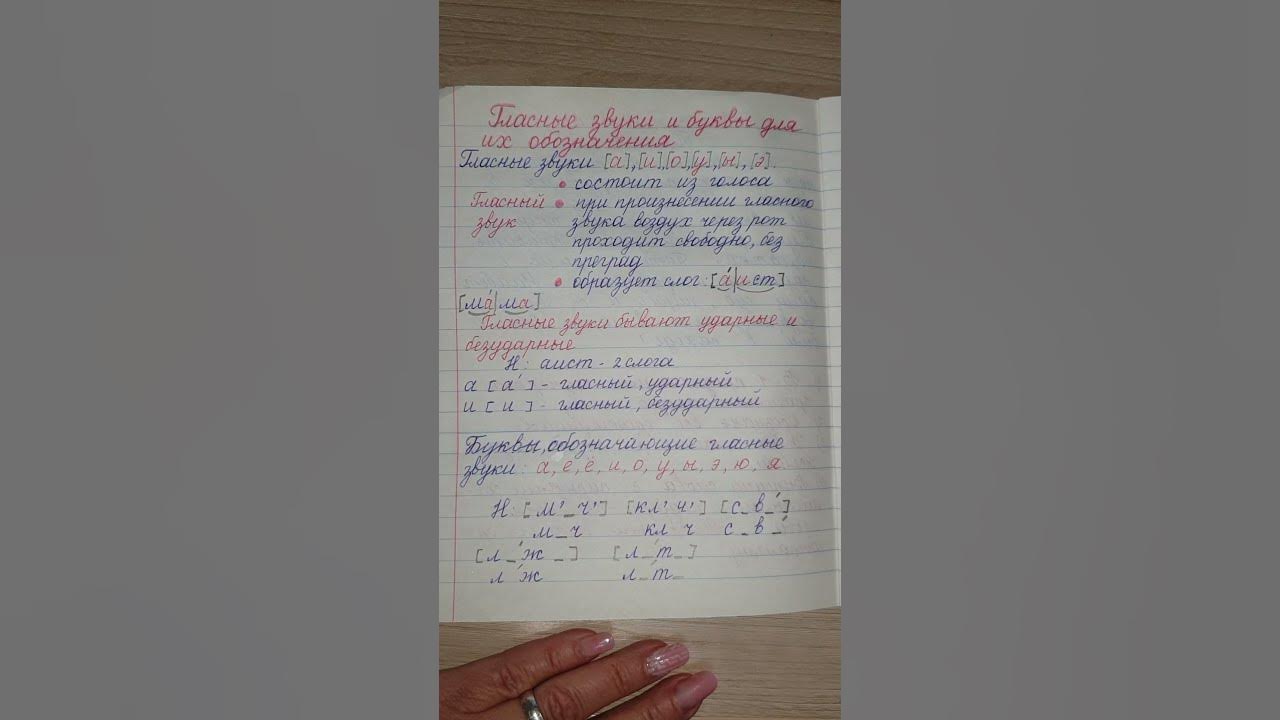 Гласные звуки и буквы для
их обозначения
Гласные звуки [а],[и],[о],[у],[ы],[э].
• состоит из голоса
Гласный • при произнесении гласного
звук звука воздух через рот
проходит свободно, без
преград
• образует слог: [а́|ист]
[ма́|ма]
Гласные звуки бывают ударные и
безударные
Н: аист - 2 слога
а [а́] - гласный, ударный
и [и] - гласный, безударный
Буквы, обозначающие гласные
звуки: а, е, ё, и, о, у, ы, э, ю, я
Н: [м'_ч'] [кл' ч'] [с_в_́]
м_ч кл ч с_в_́
[л_́ж_] [л_́т_]
л ́ж л_́т_